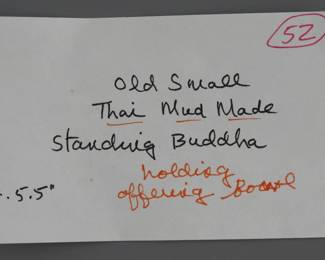 52
Old Small
Thai Mud Made
Standing Buddha
holding
offering Bowl
5.5"